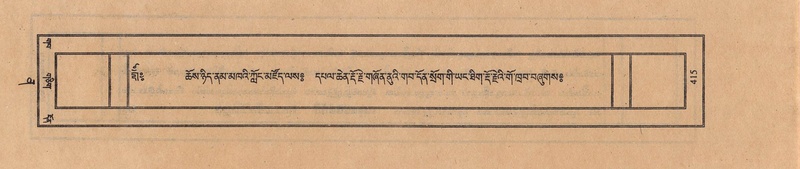 ཧྲཱིཿ ཆོས་ཉིད་ནམ་མཁའི་ཀློང་མཛོད་ལས༔ དཔལ་ཆེན་རྡོ་རྗེ་གཞོན་ནུའི་གབ་དོན་སྲོག་གི་ཡང་ཐིག་རྡོ་རྗེའི་གོ་ཁྲབ་བཞུགས༔
415